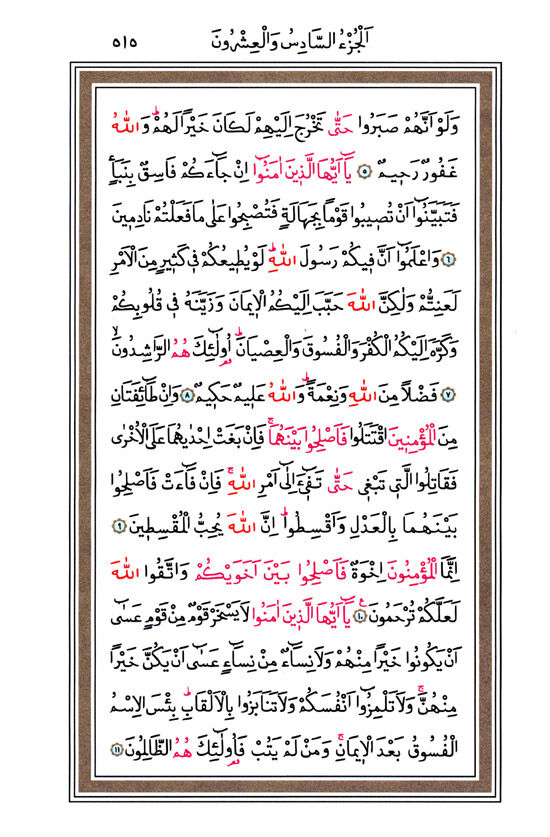 اَلْجُزْءُ السَّادِسُ وَالْعِشْرُونَ ٥١٥
وَلَوْ اَنَّهُمْ صَبَرُوا حَتّٰى تَخْرُجَ اِلَيْهِمْ لَكَانَ خَيْرًا لَهُمْۜ وَاللّٰهُ
غَفُورٌ رَحِيمٌ ٥ يَٓا اَيُّهَا الَّذِينَ اٰمَنُٓوا اِنْ جَٓاءَكُمْ فَاسِقٌ بِنَبَأٍ
فَتَبَيَّنُٓوا اَنْ تُصِيبُوا قَوْمًا بِجَهَالَةٍ فَتُصْبِحُوا عَلٰى مَا فَعَلْتُمْ نَادِمِينَ
٦ وَاعْلَمُٓوا اَنَّ فِيكُمْ رَسُولَ اللّٰهِۜ لَوْ يُطِيعُكُمْ فِي كَثِيرٍ مِنَ الْاَمْرِ
لَعَنِتُّمْ وَلٰكِنَّ اللّٰهَ حَبَّبَ اِلَيْكُمُ الْا۪يمَانَ وَزَيَّنَهُ فِي قُلُوبِكُمْ
وَكَرَّهَ اِلَيْكُمُ الْكُفْرَ وَالْفُسُوقَ وَالْعِصْيَانَۜ اُو۬لٰٓئِكَ هُمُ الرَّاشِدُونَۙ
٧ فَضْلًا مِنَ اللّٰهِ وَنِعْمَةًۜ وَاللّٰهُ عَلِيمٌ حَكِيمٌ ٨ وَاِنْ طَٓائِفَتَانِ
مِنَ الْمُؤْمِنِينَ اقْتَتَلُوا فَاَصْلِحُوا بَيْنَهُمَاۚ فَاِنْ بَغَتْ اِحْدٰيهُمَا عَلَى الْاُخْرٰى
فَقَاتِلُوا الَّتِي تَبْغِي حَتّٰى تَفِٓيءَ اِلٰٓى اَمْرِ اللّٰهِۚ فَاِنْ فَٓاءَتْ فَاَصْلِحُوا
بَيْنَهُمَا بِالْعَدْلِ وَاَقْسِطُواۜ اِنَّ اللّٰهَ يُحِبُّ الْمُقْسِطِينَ ٩
اِنَّمَا الْمُؤْمِنُونَ اِخْوَةٌ فَاَصْلِحُوا بَيْنَ اَخَوَيْكُمْ وَاتَّقُوا اللّٰهَ
لَعَلَّكُمْ تُرْحَمُونَ۟ ١٠ يَٓا اَيُّهَا الَّذِينَ اٰمَنُوا لَا يَسْخَرْ قَوْمٌ مِنْ قَوْمٍ عَسٰٓى
اَنْ يَكُونُوا خَيْرًا مِنْهُمْ وَلَا نِسَٓاءٌ مِنْ نِسَٓاءٍ عَسٰٓى اَنْ يَكُنَّ خَيْرًا
مِنْهُنَّۚ وَلَا تَلْمِزُٓوا اَنْفُسَكُمْ وَلَا تَنَابَزُوا بِالْاَلْقَابِۜ بِئْسَ الِاسْمُ
الْفُسُوقُ بَعْدَ الْا۪يمَانِۚ وَمَنْ لَمْ يَتُبْ فَاُو۬لٰٓئِكَ هُمُ الظَّالِمُونَ ١١